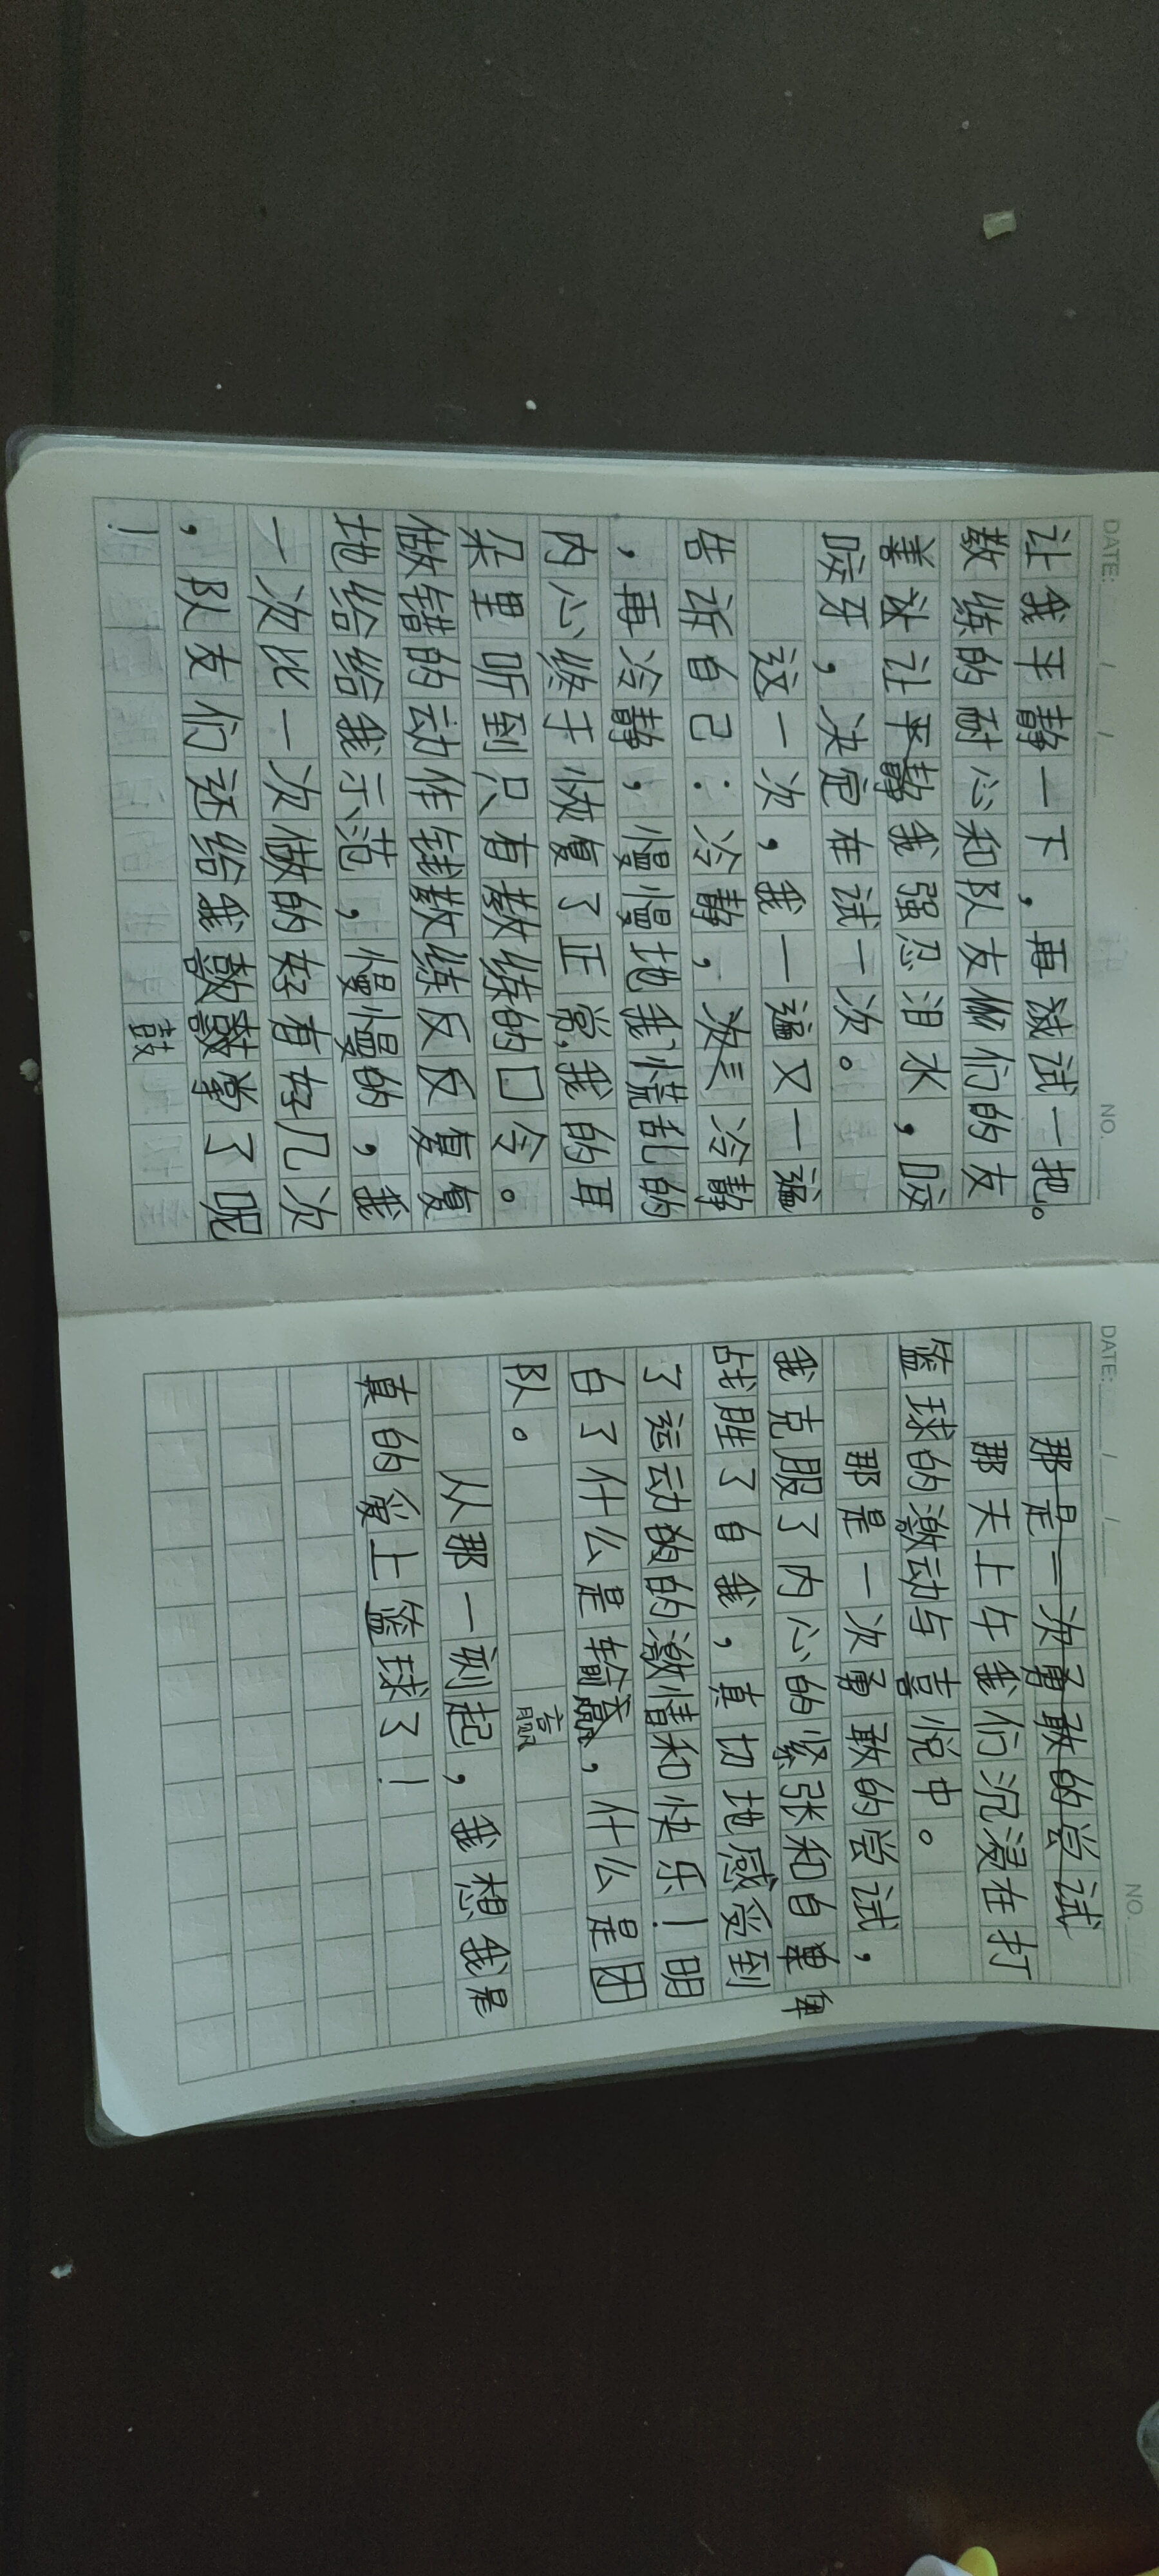 DATE: / / NO.
让我平静一下，再试试一把。
教练的耐心和队友们的友
善让我强忍泪水，咬
咬牙，决定在试一次。
这一次，我一遍又一遍
告诉自己：冷静，冷静
，再冷静，慢慢地我慌乱的
内心终于恢复了正常，我的耳
朵里听到只有教练的口令。
做错的动作教练反反复复
地给给我示范，慢慢的，我
一次比一次做的好有好几次
，队友们还给我鼓掌了呢
！
鼓
DATE: / / NO.
那是一次勇敢的尝试
那天上午我们沉浸在打
篮球的激动与喜悦中。
那是一次勇敢的尝试，
我克服了内心的紧张和自卑
战胜了自我，真切地感受到
了运动的的激情和快乐！明
白了什么是输赢，什么是团
队。
赢
从那一刻起，我想我是
真的爱上篮球了！